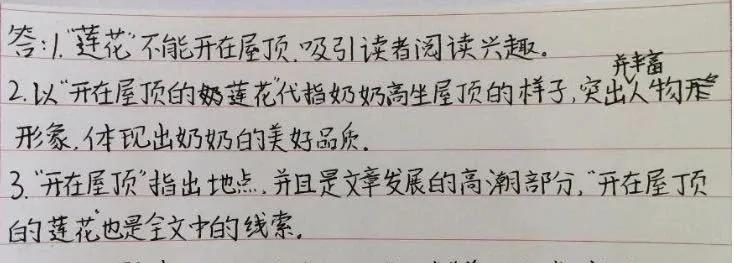 答:1.“莲花”不能开在屋顶,吸引读者阅读兴趣。
2.以“开在屋顶的莲花”代指奶奶高坐屋顶的样子,突出并丰富人物
形象,体现出奶奶的美好品质。
3.“开在屋顶”指出地点,并且是文章发展的高潮部分,“开在屋顶
的莲花”也是全文中的线索。